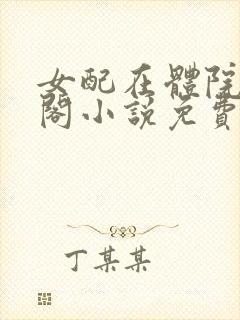 女配在體院
閣小說免費
丁某某